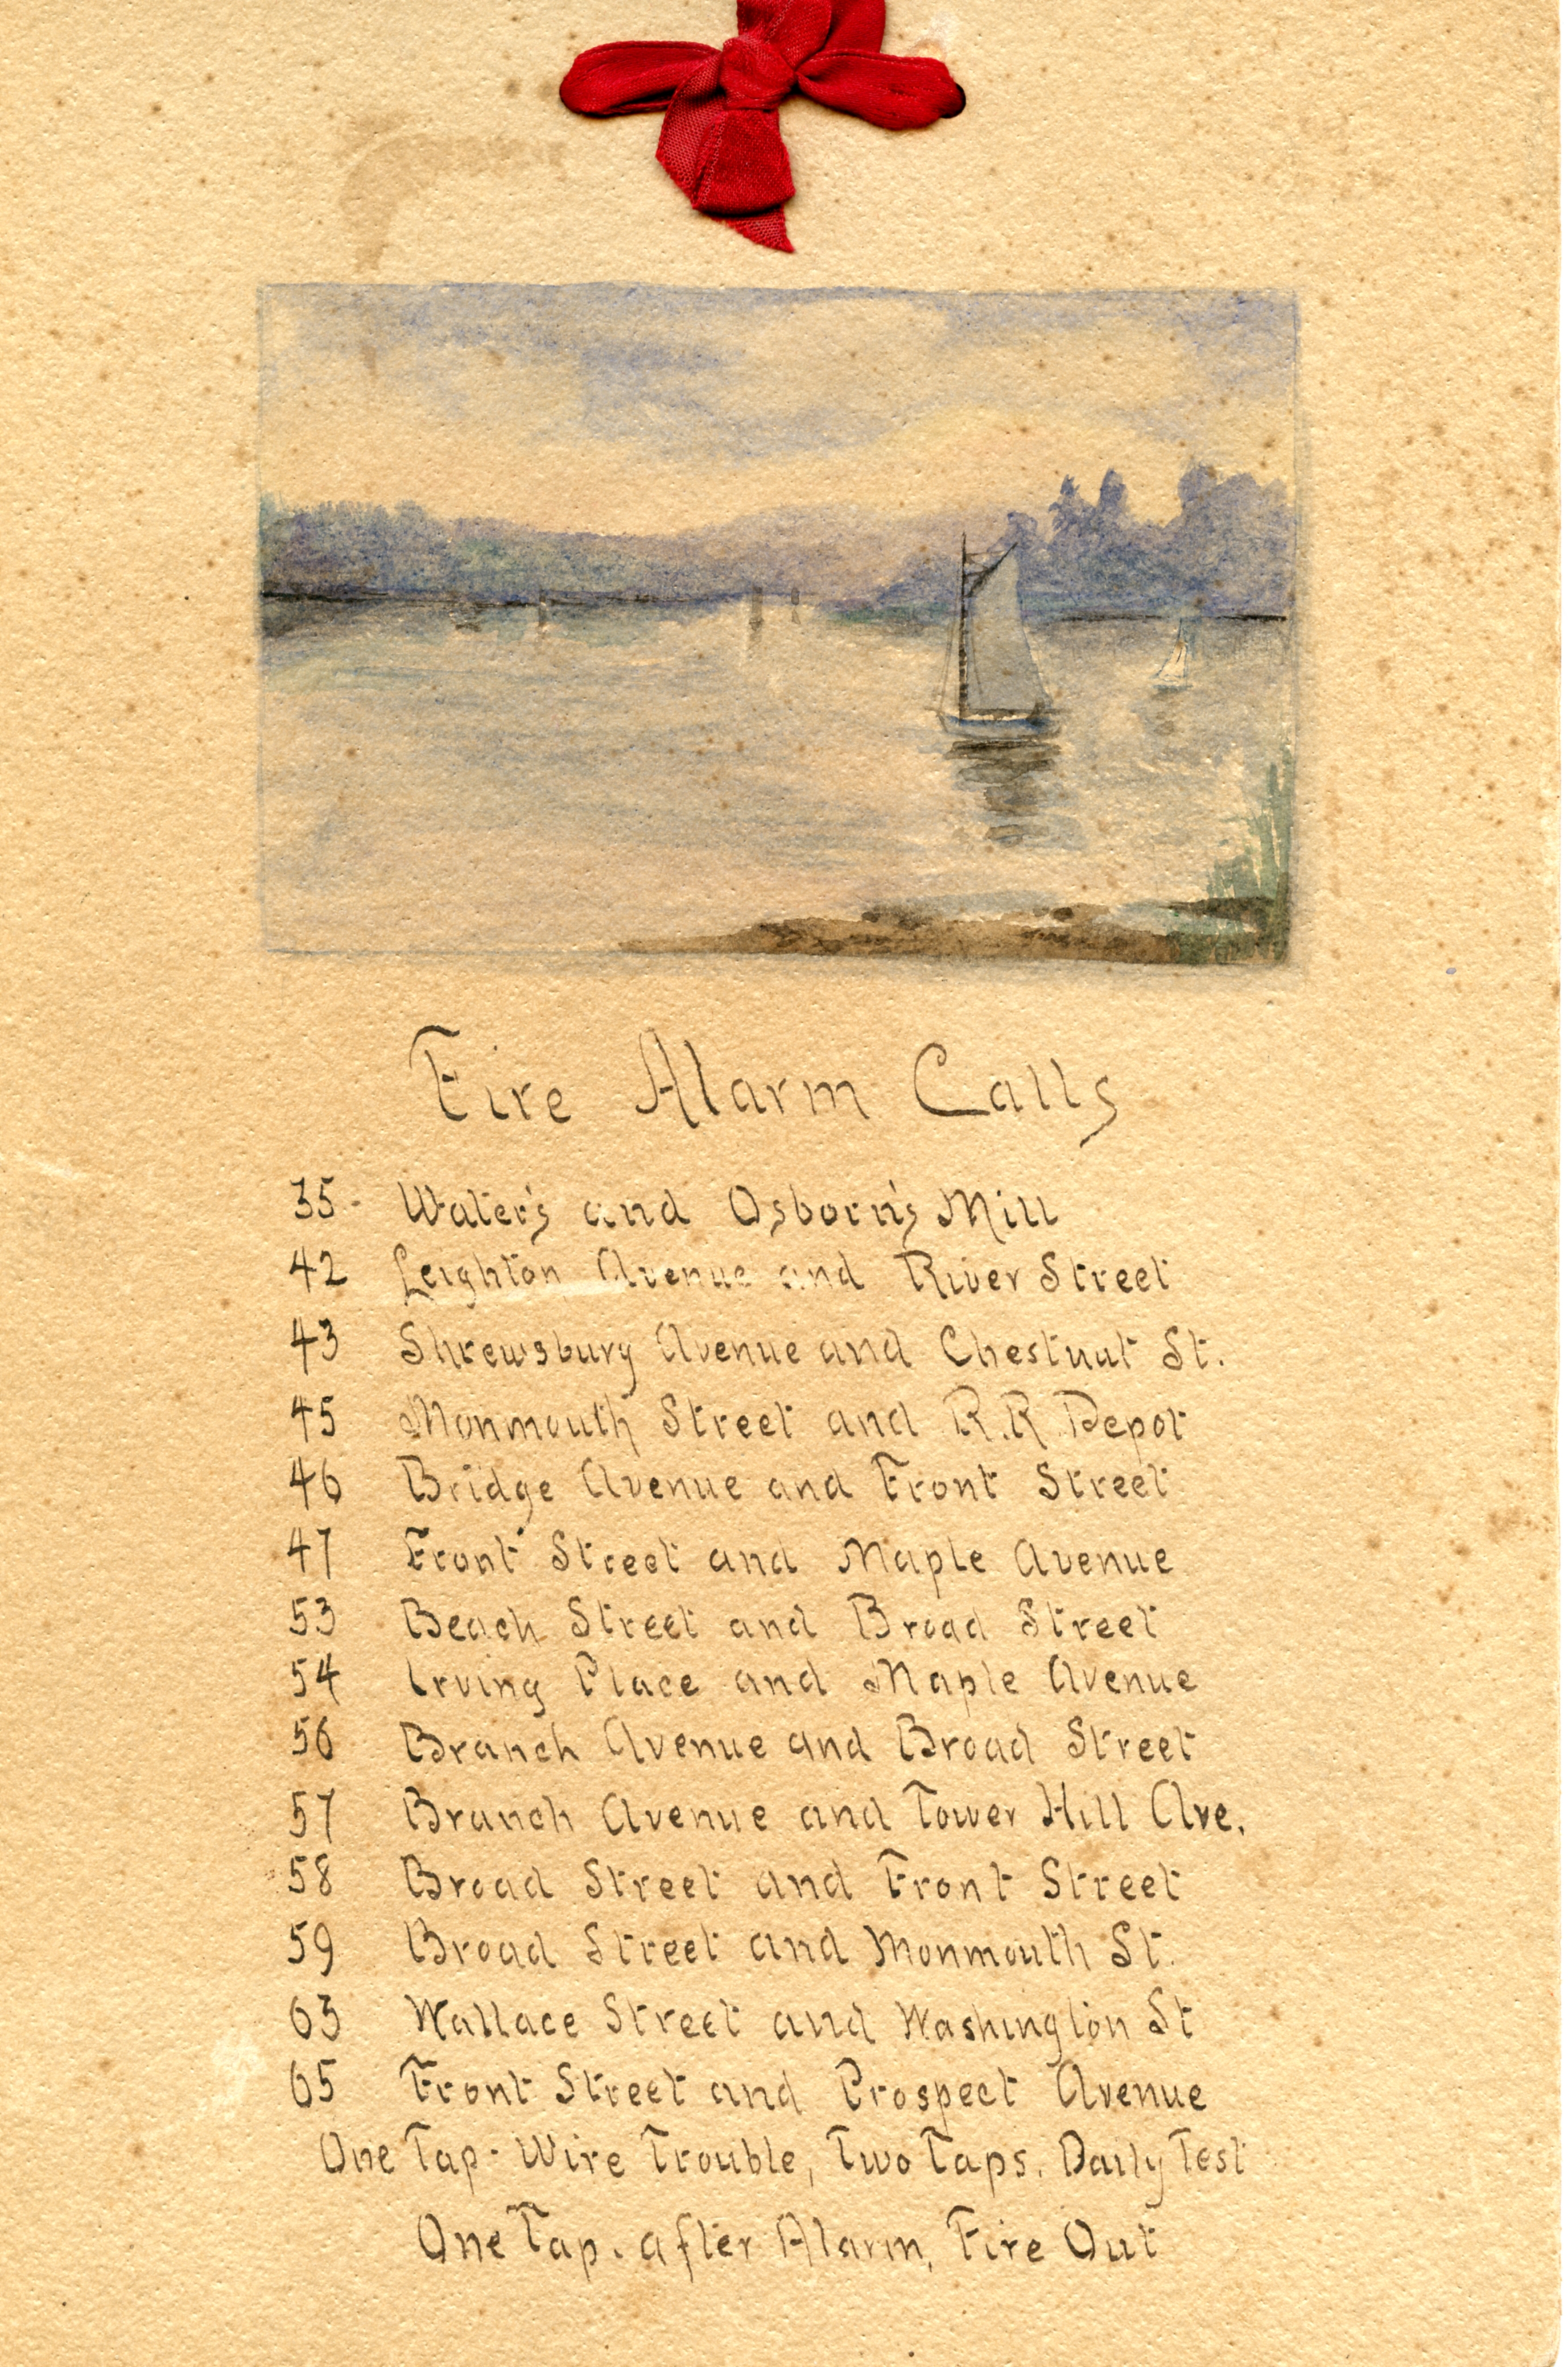 Fire Alarm Calls
35 - Water's and Osborn's Mill
42 Leighton Avenue and River Street
43 Shrewsbury Avenue and Chestnut St.
45 Monmouth Street and R.R. Depot
46 Bridge Avenue and Front Street
47 Front Street and Maple Avenue
53 Beach Street and Broad Street
54 Irving Place and Maple Avenue
56 Branch Avenue and Broad Street
57 Branch Avenue and Tower Hill Ave.
58 Broad Street and Front Street
59 Broad Street and Monmouth St.
63 Wallace Street and Washington St
65 Front Street and Prospect Avenue
One Tap - Wire Trouble, Two Taps. Daily Test
One Tap. after Alarm, Fire Out